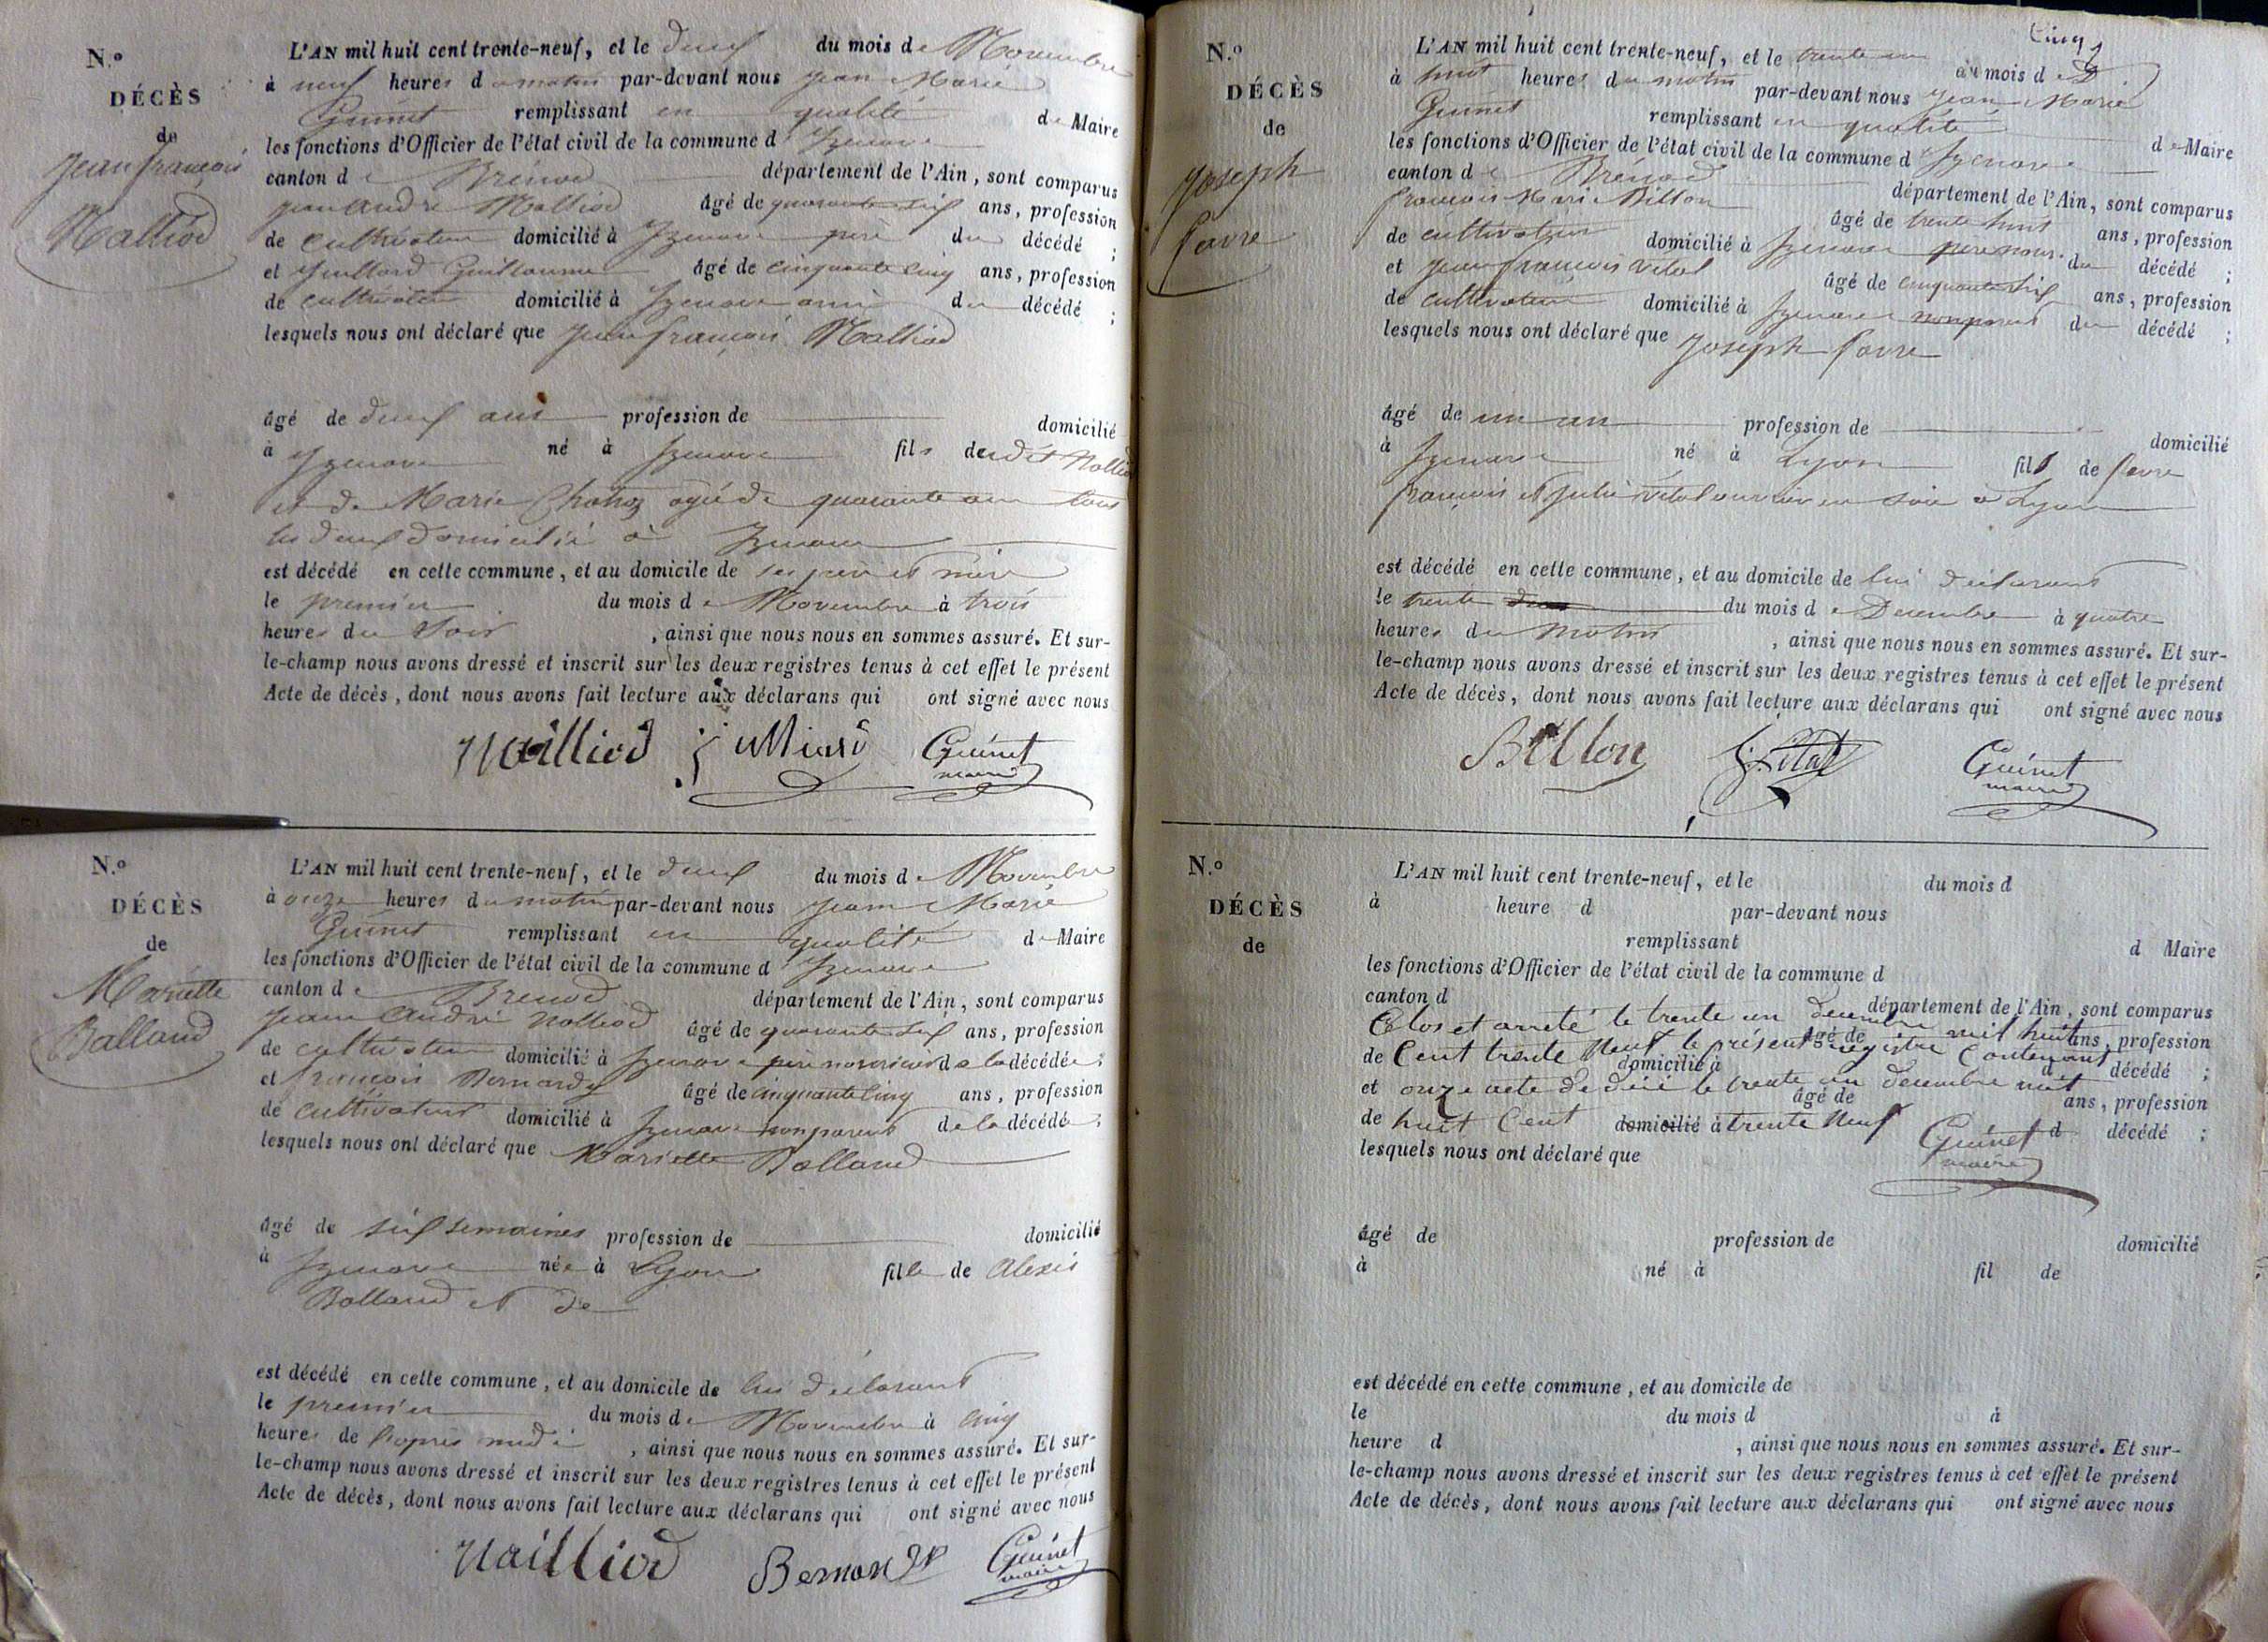 N.o
DÉCÈS
de
Jean françois
Malliod
L'AN mil huit cent trente-neuf, et le deux du mois de Novembre
à neuf heures du matin par-devant nous Jean Marie
Guinet remplissant en qualité de Maire
les fonctions d'Officier de l'état civil de la commune d'Izenave
canton de Brénod département de l'Ain, sont comparus
Jean André Malliod âgé de quarante six ans, profession
de cultivateur domicilié à Izenave père du décédé ;
et Juilliard Guillaume âgé de cinquante cinq ans, profession
de cultivateur domicilié à Izenave ami du décédé ;
lesquels nous ont déclaré que Jean françois Malliod
âgé de deux ans profession de domicilié
à Izenave né à Izenave fils de dit Malliod
et de Marie Chohoz agé de quarante an tous
les deux domicilié à Izenave
est décédé en cette commune, et au domicile de ses père et mère
le premier du mois de Novembre à trois
heures du Soir, ainsi que nous nous en sommes assuré. Et sur-
le-champ nous avons dressé et inscrit sur les deux registres tenus à cet effet le présent
Acte de décès, dont nous avons fait lecture aux déclarans qui ont signé avec nous
Mailliod Julliard Guinet
maire
N.o
DÉCÈS
de
Mariette
Balland
L'AN mil huit cent trente-neuf, et le deux du mois de Novembre
à onze heures du matin par-devant nous Jean Marie
Guinet remplissant en qualité de Maire
les fonctions d'Officier de l'état civil de la commune d'Izenave
canton de Brenod département de l'Ain, sont comparus
Jean André Malliod âgé de quarante six ans, profession
de cultivateur domicilié à Izenave père nourricier de la décédée ;
et françois Bernardy âgé de cinquante cinq ans, profession
de cultivateur domicilié à Izenave non parent de la décédé ;
lesquels nous ont déclaré que Mariette Balland
âgé de six semaines profession de domicilié
à Izenave née à Lyon fille de Alexis
Balland et de
est décédé en cette commune, et au domicile de lui déclarant
le premier du mois de Novembre à cinq
heures de l'apres midi, ainsi que nous nous en sommes assuré. Et sur-
le-champ nous avons dressé et inscrit sur les deux registres tenus à cet effet le présent
Acte de décès, dont nous avons fait lecture aux déclarans qui ont signé avec nous
Mailliod Guinet
maire
Cinq
N.o
DÉCÈS
de
Joseph
favre
L'AN mil huit cent trente-neuf, et le trente un du mois de
à huit heures du matin par-devant nous Jean Marie
Guinet remplissant en qualité de Maire
les fonctions d'Officier de l'état civil de la commune d'Izenave
canton de Brénod département de l'Ain, sont comparus
françois Marie Billon âgé de trente huit ans, profession
de cultivateur domicilié à Izenave pere nour. du décédé ;
et Jean françois Vital âgé de cinquante six ans, profession
de cultivateur domicilié à Izenave non parent du décédé ;
lesquels nous ont déclaré que Joseph favre
âgé de un an profession de domicilié
à Izenave né à Lyon fils de favre
françois et Julie Vital ouvrier en soie a Lyon
est décédé en cette commune, et au domicile de lui déclarant
le trente du mois de Decembre à quatre
heures du Matin, ainsi que nous nous en sommes assuré. Et sur-
le-champ nous avons dressé et inscrit sur les deux registres tenus à cet effet le présent
Acte de décès, dont nous avons fait lecture aux déclarans qui ont signé avec nous
Billon Vital Guinet
maire
N.o
DÉCÈS
de
L'AN mil huit cent trente-neuf, et le du mois d
à heure d par-devant nous
remplissant d Maire
les fonctions d'Officier de l'état civil de la commune d
canton d département de l'Ain, sont comparus
Clos et arreté le trente un decembre mil huit
âgé de ans, profession
de Cent trente Neuf le présent registre Contenant
domicilié à d décédé ;
et onze acte de décé le trente un decembre mil
âgé de ans, profession
de huit Cent domicilié à trente Neuf Guinet d décédé ;
maire
lesquels nous ont déclaré que
âgé de profession de domicilié
à né à fil de
est décédé en cette commune, et au domicile de
le du mois d à
heure d , ainsi que nous nous en sommes assuré. Et sur-
le-champ nous avons dressé et inscrit sur les deux registres tenus à cet effet le présent
Acte de décès, dont nous avons fait lecture aux déclarans qui ont signé avec nous